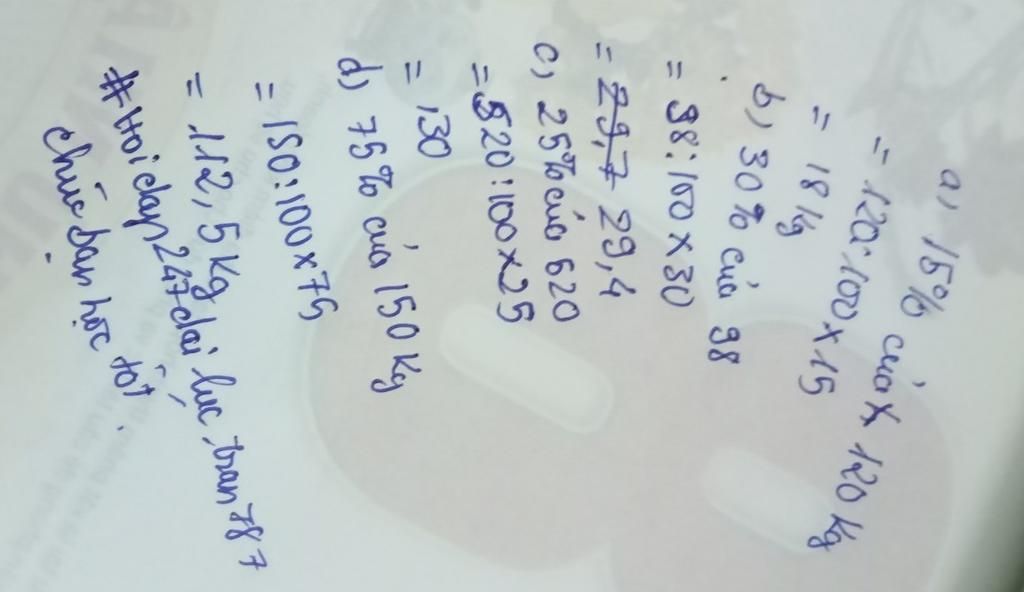 a, 15% của x 120 kg
= 120:100 x 15
= 18 kg
b, 30% của 98
= 98:100 x 30
= 29,7 29,4
c, 25% của 520
= 520:100 x 25
= 130
d) 75% của 150 kg
= 150:100 x 75
= 112,5 kg
# Hoidap247 dai luc. tran787
chúc bạn học tốt.